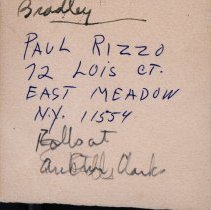 Bradley
PAUL RIZZO
72 LOIS CT.
EAST MEADOW
N.Y. 11554
at
Clark